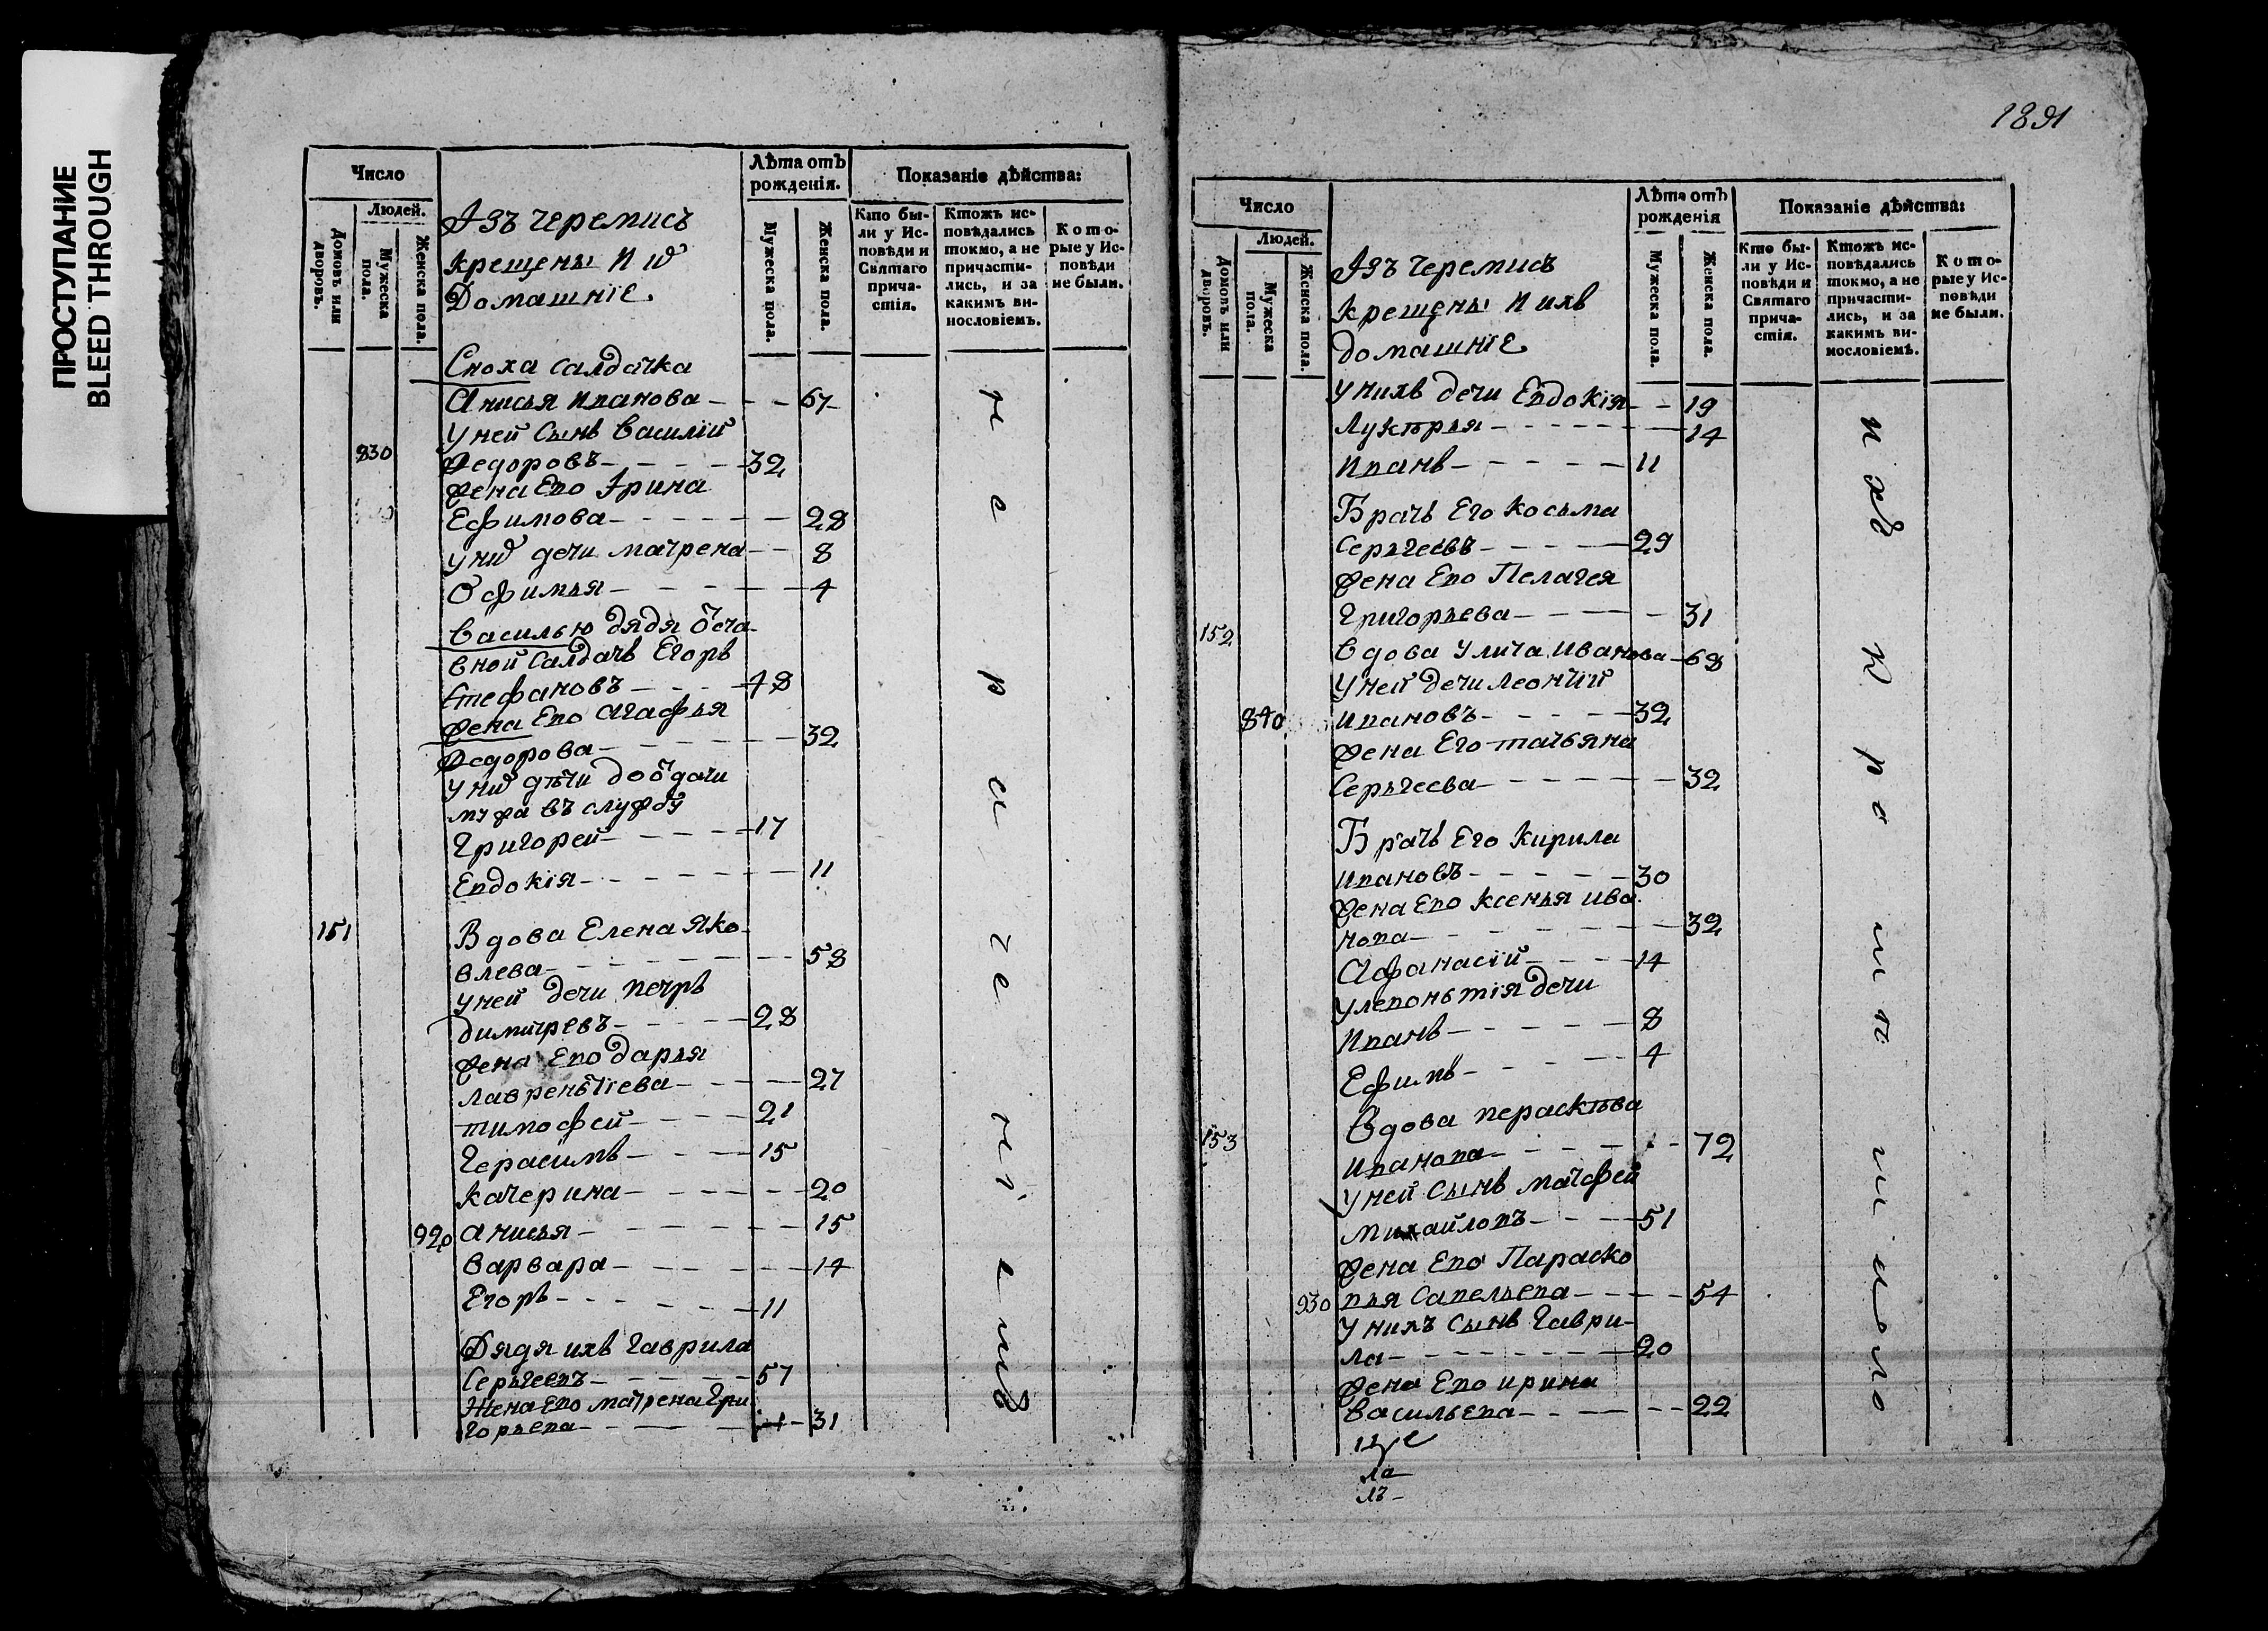 ПРОСТУПАНИЕ
BLEED THROUGH
Число
Лѣта отъ
рожденія.
Показаніе дѣйства:
Людей.
Домовъ или дворовъ.
Мужеска пола.
Женска пола.
Мужеска пола.
Женска пола.
Кто бы-
ли у Ис-
повѣди и
Святаго
прича-
стія.
Ктожъ ис-
повѣдались
токмо, а не
причасти-
лись, и за
какимъ ви-
нословіемъ.
Кото-
рые у Ис-
повѣди
не были.
Изъ черемисъ
крещены и
Домашніе
Сноха салдатка
Анисья иванова - - - 67
У ней сынъ василій
830 Федоровъ - - - 32
жена Его Ирина
Ефимова - - - 28
у них дети матрена - - 8
Офимья - - - 4
василью дядя отста-
вной салдатъ Егоръ
Стефановъ - - - 48
жена Его агафья
Федорова - - - 32
у них дѣти до отдачи
мужа въ службу
Григорей - - - 17
Евдокія - - - 11
151 Вдова Елена Яко-
влева - - - 58
у ней дети петръ
димитревъ - - - 28
жена Его дарья
лаврентіева - - - 27
тимофей - - - 21
Герасимъ - - - 15
катерина - - - 20
920 анисья - - - 15
варвара - - - 14
Егоръ - - - 11
Дядя ихъ гаврила
Сергеевъ - - - 57
Жена Его матрена Гри
горьева - - - 31
1891
Число
Лѣта отъ
рожденія
Показаніе дѣйства:
Людей.
Домовъ или дворовъ.
Мужеска пола.
Женска пола.
Мужеска пола.
Женска пола.
Кто бы-
ли у Ис-
повѣди и
Святаго
прича-
стія.
Ктожъ ис-
повѣдались
токмо, а не
причасти-
лись, и за
какимъ ви-
нословіемъ.
Кото-
рые у Ис-
повѣди
не были.
Изъ черемисъ
крещены и ихъ
домашніе
у нихъ дети Евдокія - - 19
Лукѣрья - - - 14
Иванъ - - - 11
Братъ Его косьма
Сергеевъ - - - 29
жена Его Пелагея
Григорьева - - - 31
152 вдова улита иванова - 68
у ней дети леонтій
840 ивановъ - - - 32
жена Его татьяна
Сергеева - - - 32
Братъ Его кирила
ивановъ - - - 30
жена Его ксенья ива
нова - - - 32
Афанасій - - - 14
у леоньтія дети
Иванъ - - - 8
Ефимъ - - - 4
153 Вдова пераскѣва
иванова - - - 72
у ней сынъ матфей
михайловъ - - - 51
жена Его Параско
930 вья савельева - - - 54
у нихъ сынъ гаври-
ла - - - 20
жена Его ирина
васильева - - - 22